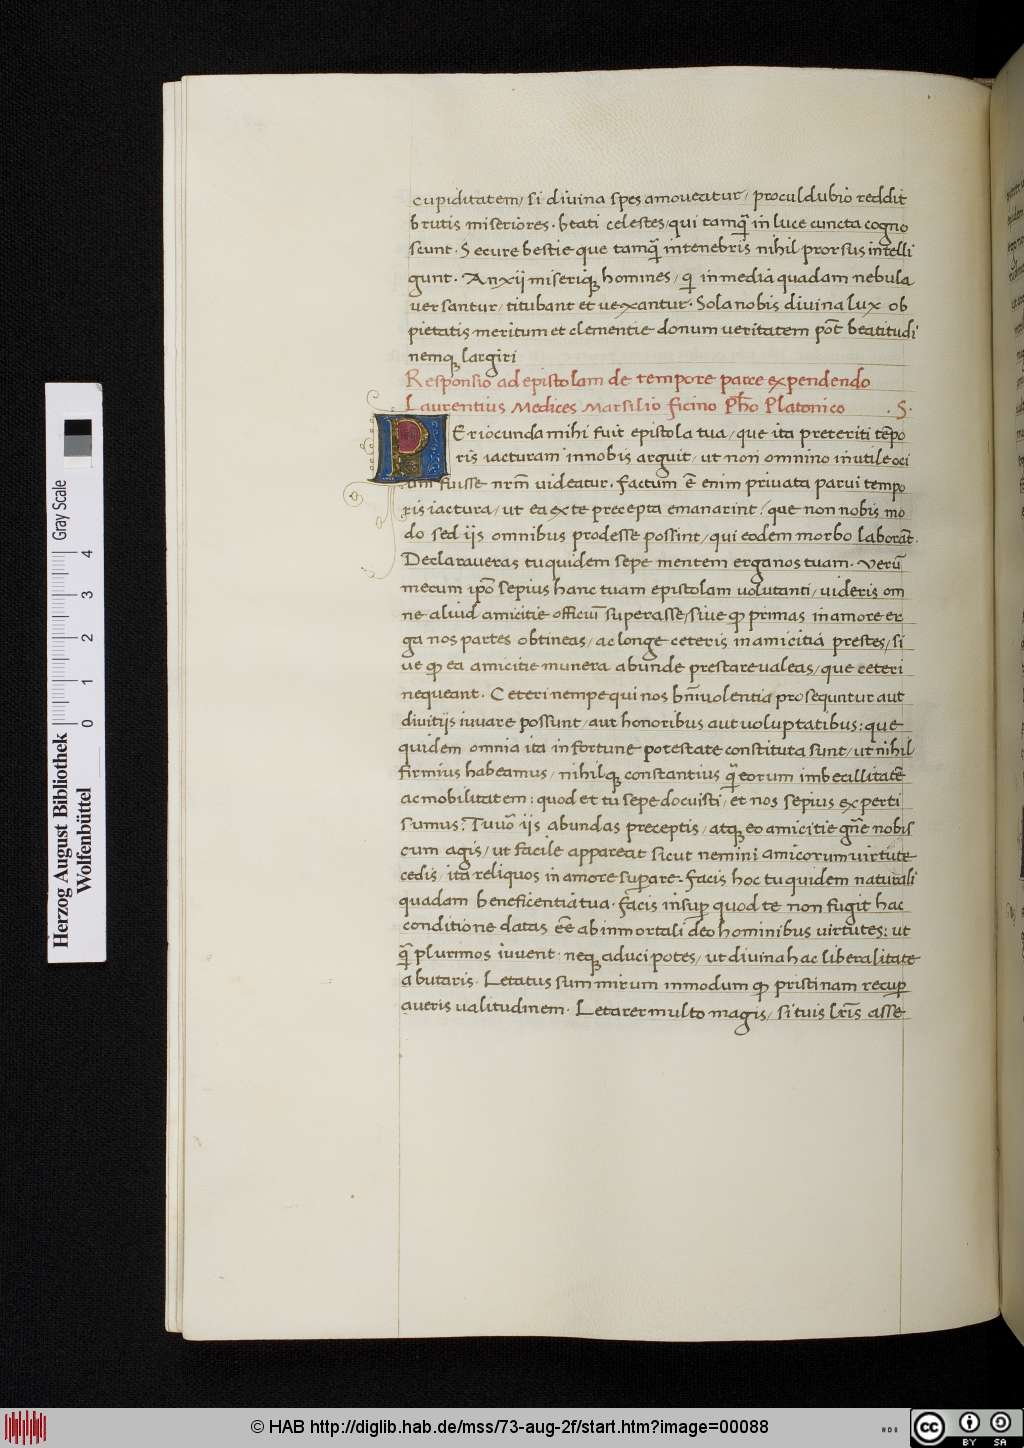 cupiditatem / si divina spes amoveatur / procul dubio reddit
brutis miseriores. beati celestes / qui tamq̃ in luce cuncta cogno
scunt. Secure bestie que tamq̃ in tenebris nihil prorsus intelli
gunt. Anxij miseriq homines / qi in media quadam nebula
versantur / titubant et vexantur. Sola nobis divina lux ob
pietatis meritum et clementie donum veritatem põt beatitudi
nemq largiri
Responsio ad epistolam de tempore parce expendendo
Laurentius Medices Marsilio ficino Pħo Platonico .S.
PEriocunda mihi fuit epistola tua / que ita preteriti tẽpo
ris iacturam in nobis arguit / ut non omnino inutile oci
um fuisse nr̃m videatur. factum ẽ enim privata parvi tempo
ris iactura / ut ea ex te precepta emanarint / que non nobis mo
do sed ijs omnibus prodesse possint / qui eodem morbo laborãt.
Declaraveras tu quidem sepe mentem erga nos tuam. verũ
mecum ip̃o sepius hanc tuam epistolam volutanti / videris om
ne aliud amicitie officiũ superasse / sive qp primas in amore er
ga nos partes obtineas / ac longe ceteris in amicitia prestes / si
ve qp ea amicitie munera abunde prestare valeas / que ceteri
nequeant. Ceteri nempe qui nos bñivolentia prosequntur aut
divitijs iuvare possunt / aut honoribus aut voluptatibus: que
quidem omnia ita in fortune potestate constituta sunt / ut nihil
firmius habeamus / nihilq constantius q̃ eorum imbecillitatẽ
ac mobilitatem: quod et tu sepe docuisti / et nos sepius experti
sumus. Tu võ ijs abundas preceptis / atq eo amicitie gñe nobis
cum agis / ut facile appareat sicut nemini amicorum virtute
cedis / ita reliquos in amore superare. facis hoc tu quidem naturali
quadam beneficentia tua. facis insup quod te non fugit hac
conditione datas eẽ ab inmortali deo hominibus virtutes: ut
q̃ plurimos iuvent. neq aduci potes / ut divina hac liberalitate
abutaris. Letatus sum mirum inmodum qp pristinam recup
averis valitudinem. Letarer multo magis / si tuis lr̃is asse
Herzog August Bibliothek
Wolfenbüttel
0 1 2 3 4
Gray Scale
© HAB http://diglib.hab.de/mss/73-aug-2f/start.htm?image=00088
cc BY SA